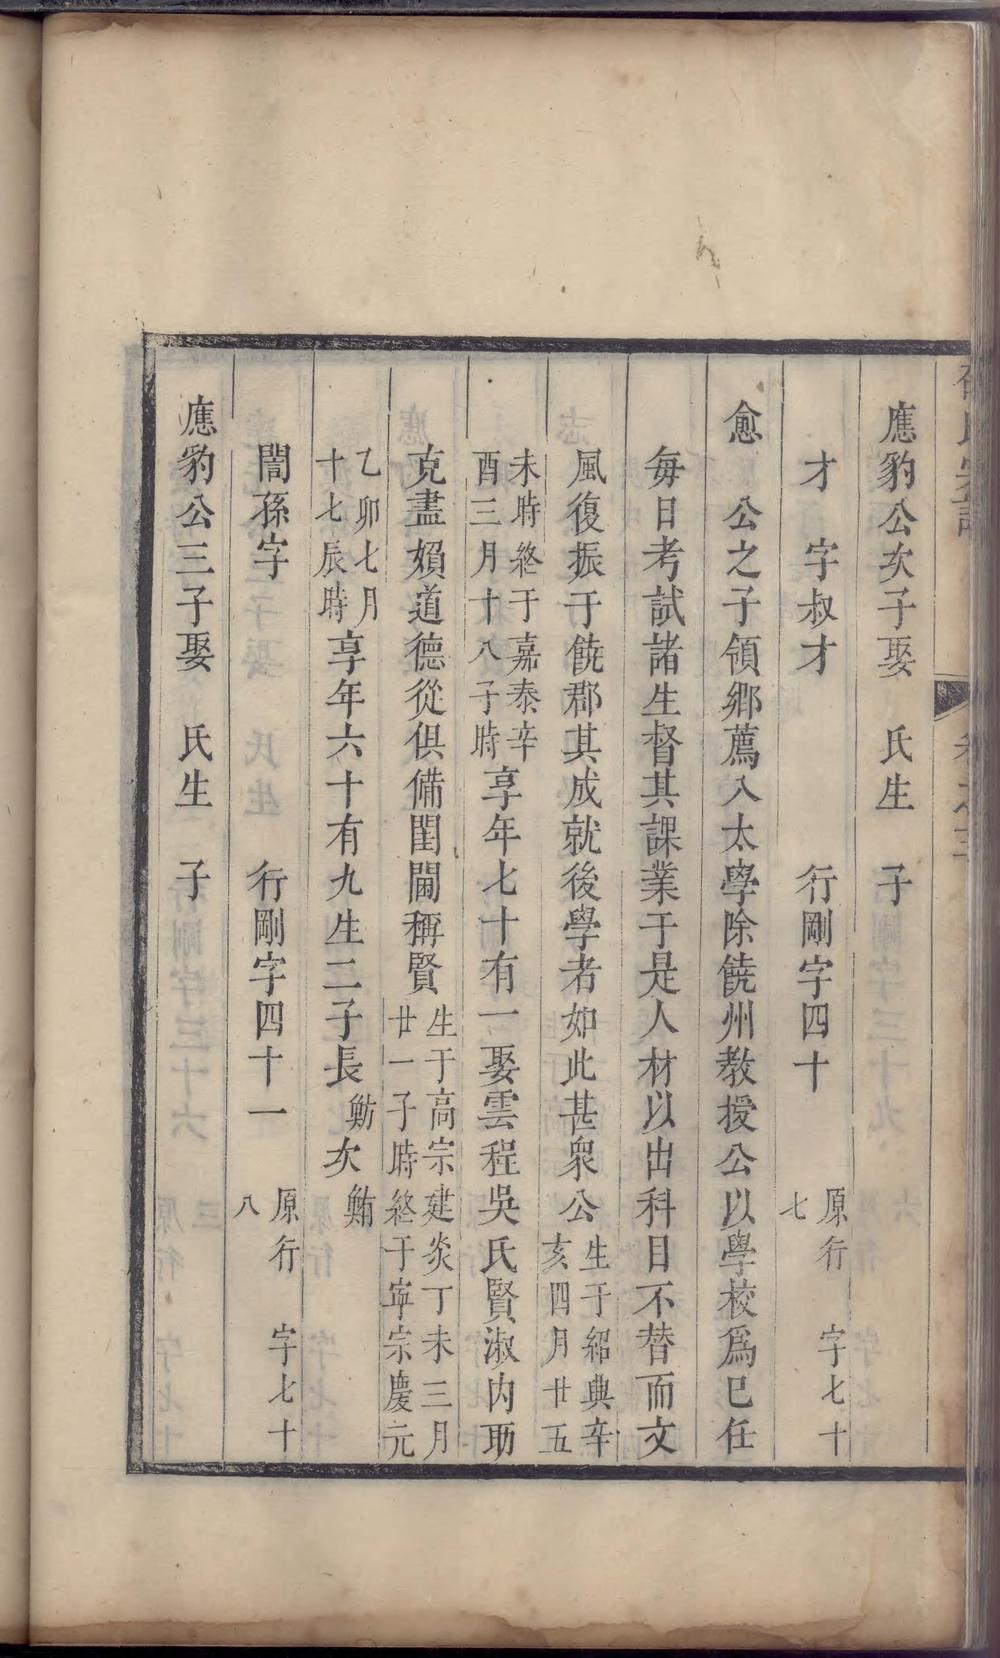 應豹公次子娶　氏生　子
才　字叔才　行剛字四十　原行　字七十七
愈　公之子領鄉薦入太學除饒州教授公以學校爲已任
每日考試諸生督其課業于是人材以出科目不替而文
風復振于饒郡其成就後學者如此甚衆公生于紹興辛亥四月廿五
未時終于嘉泰辛酉三月十八子時享年七十有一娶雲程吳氏賢淑內助
克盡嬪道德從俱備閨閫稱賢生于高宗建炎丁未三月廿一子時終于寧宗慶元
乙卯七月十七辰時享年六十有九生二子長魴次鮪
誾孫字　行剛字四十一　原行　字七十八
應豹公三子娶　氏生　子